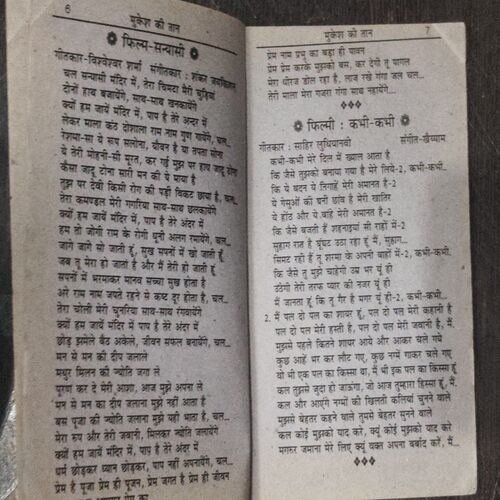 6
मुकेश की तान
फिल्म-सन्यासी
गीतकार-विश्वेश्वर शर्मा संगीतकार : शंकर जयकिशन
चल सन्यासी मंदिर में, तेरा चिमटा मेरी चूड़ियां
दोनों हाथ बजायेंगे, साथ-साथ खनकायेंगे
क्यों हम जायें मंदिर में, पाप है तेरे अन्दर में
लेकर माला कंठ दोशाला राम नाम गुण गायेंगे, चल..
रेशमा-सा ये रूप सलोना, यौवन है या तपता सोना
ये तेरी मोहनी-सी मूरत, कर गई मुझ पर हाय जादू टोना
कैसा जादू टोना सारी मन की ये माया है
तुझ पर देवी किसी रोग की पड़ी विकट छाया है, चल..
तेरा कमण्डल मेरी गगरिया साथ-साथ छलकायेंगे
क्यों हम जायें मंदिर में, पाप है तेरे अंदर में
हम तो जोगी राम के रोगी धूनी अलग रमायेंगे, चल..
जागे जागे सो जाती हूं, सुख सपनों में खो जाती हूं
जब तू मेरा हो जाता है और मैं तेरी हो जाती हूं
सपनों में भरमाकर मानव सच्चा सुख खोता है
अरे राम नाम जपते रहने से कष्ट दूर होता है, चल..
तेरा चोली मेरी चुनरिया साथ-साथ रंगवायेंगे
क्यों हम जायें मंदिर में, पाप है तेरे अंदर में
छोड़ झमेले बैठ अकेले, जीवन सफल बनायेंगे, चल..
मन से मन की दीप जलाले
मधुर मिलन की ज्योति जगा ले
पूरण कर दे मेरी आशा, आज मुझे अपना ले
मन से मन का दीप जलाना मुझे नहीं आता है
बस पूजा की ज्योति जलाना मुझे यही भाता है, चल..
मेरा रूप और तेरी जवानी, मिलकर ज्योति जलायेंगे
क्यों हम जायें मंदिर में, पाप है तेरे अंदर में
धर्म छोड़कर ध्यान छोड़कर, पाप नहीं अपनायेंगे, चल..
प्रेम है पूजा प्रेम ही पूजन, प्रेम जगत है प्रेम ही जीवन
मुकेश की तान
7
प्रेम नाम प्रभु का बड़ा ही पावन
प्रेम प्रेम करके मुझको बस, कर देगी तू पागल
मेरा धीरज डोल रहा है, लाज रखे गंगा जल चल..
तेरी माला मेरा गजरा गंगा साथ नहायेंगे...
फिल्मी : कभी-कभी
गीतकार : साहिर लुधियानवी संगीत-खैय्याम
कभी-कभी मेरे दिल में ख्याल आता है
कि जैसे तुझको बनाया गया है मेरे लिये-2, कभी-कभी..
कि ये बदन ये निगाहें मेरी अमानत है-2
ये गेसुओं की घनी छांव है मेरी खातिर
ये होंठ और ये बांहें मेरी अमानत है-2
कि जैसे बजती हैं शहनाइयां सी राहों में-2
सुहाग रात है घूंघट उठा रहा हूं मैं, सुहाग...
सिमट रही हैं तू शरमा के अपनी बाहों में-2, कभी-कभी..
कि जैसे तू मुझे चाहेगी उम्र भर यूं ही
उठेगी तेरी तरफ प्यार की नजर यूं ही
मैं जानता हूं कि तू गैर है मगर यूं ही-2, कभी-कभी..
2. मैं पल दो पल का शायर हूं, पल दो पल मेरी कहानी है
पल दो पल मेरी हस्ती है, पल दो पल मेरी जवानी है, मैं..
मुझसे पहले कितने शायर आये और आकर चले गये
कुछ आहें भर कर लौट गए, कुछ नग्में गाकर चले गए
वो भी एक पल का किस्सा था, मैं भी इक पल का किस्सा हूं
कल तुझसे जुदा हो जाऊंगा, जो आज तुम्हारा हिस्सा हूं, मैं..
कल और आएंगे नग्मों की खिलती कलियां चुनने वाले
मुझसे बेहतर कहने वाले तुमसे बेहतर सुनने वाले
कल कोई मुझको याद करें, क्यूं कोई मुझको याद करें
मगरूर जमाना मेरे लिए क्यूं वक्त अपना बर्बाद करें, मैं...